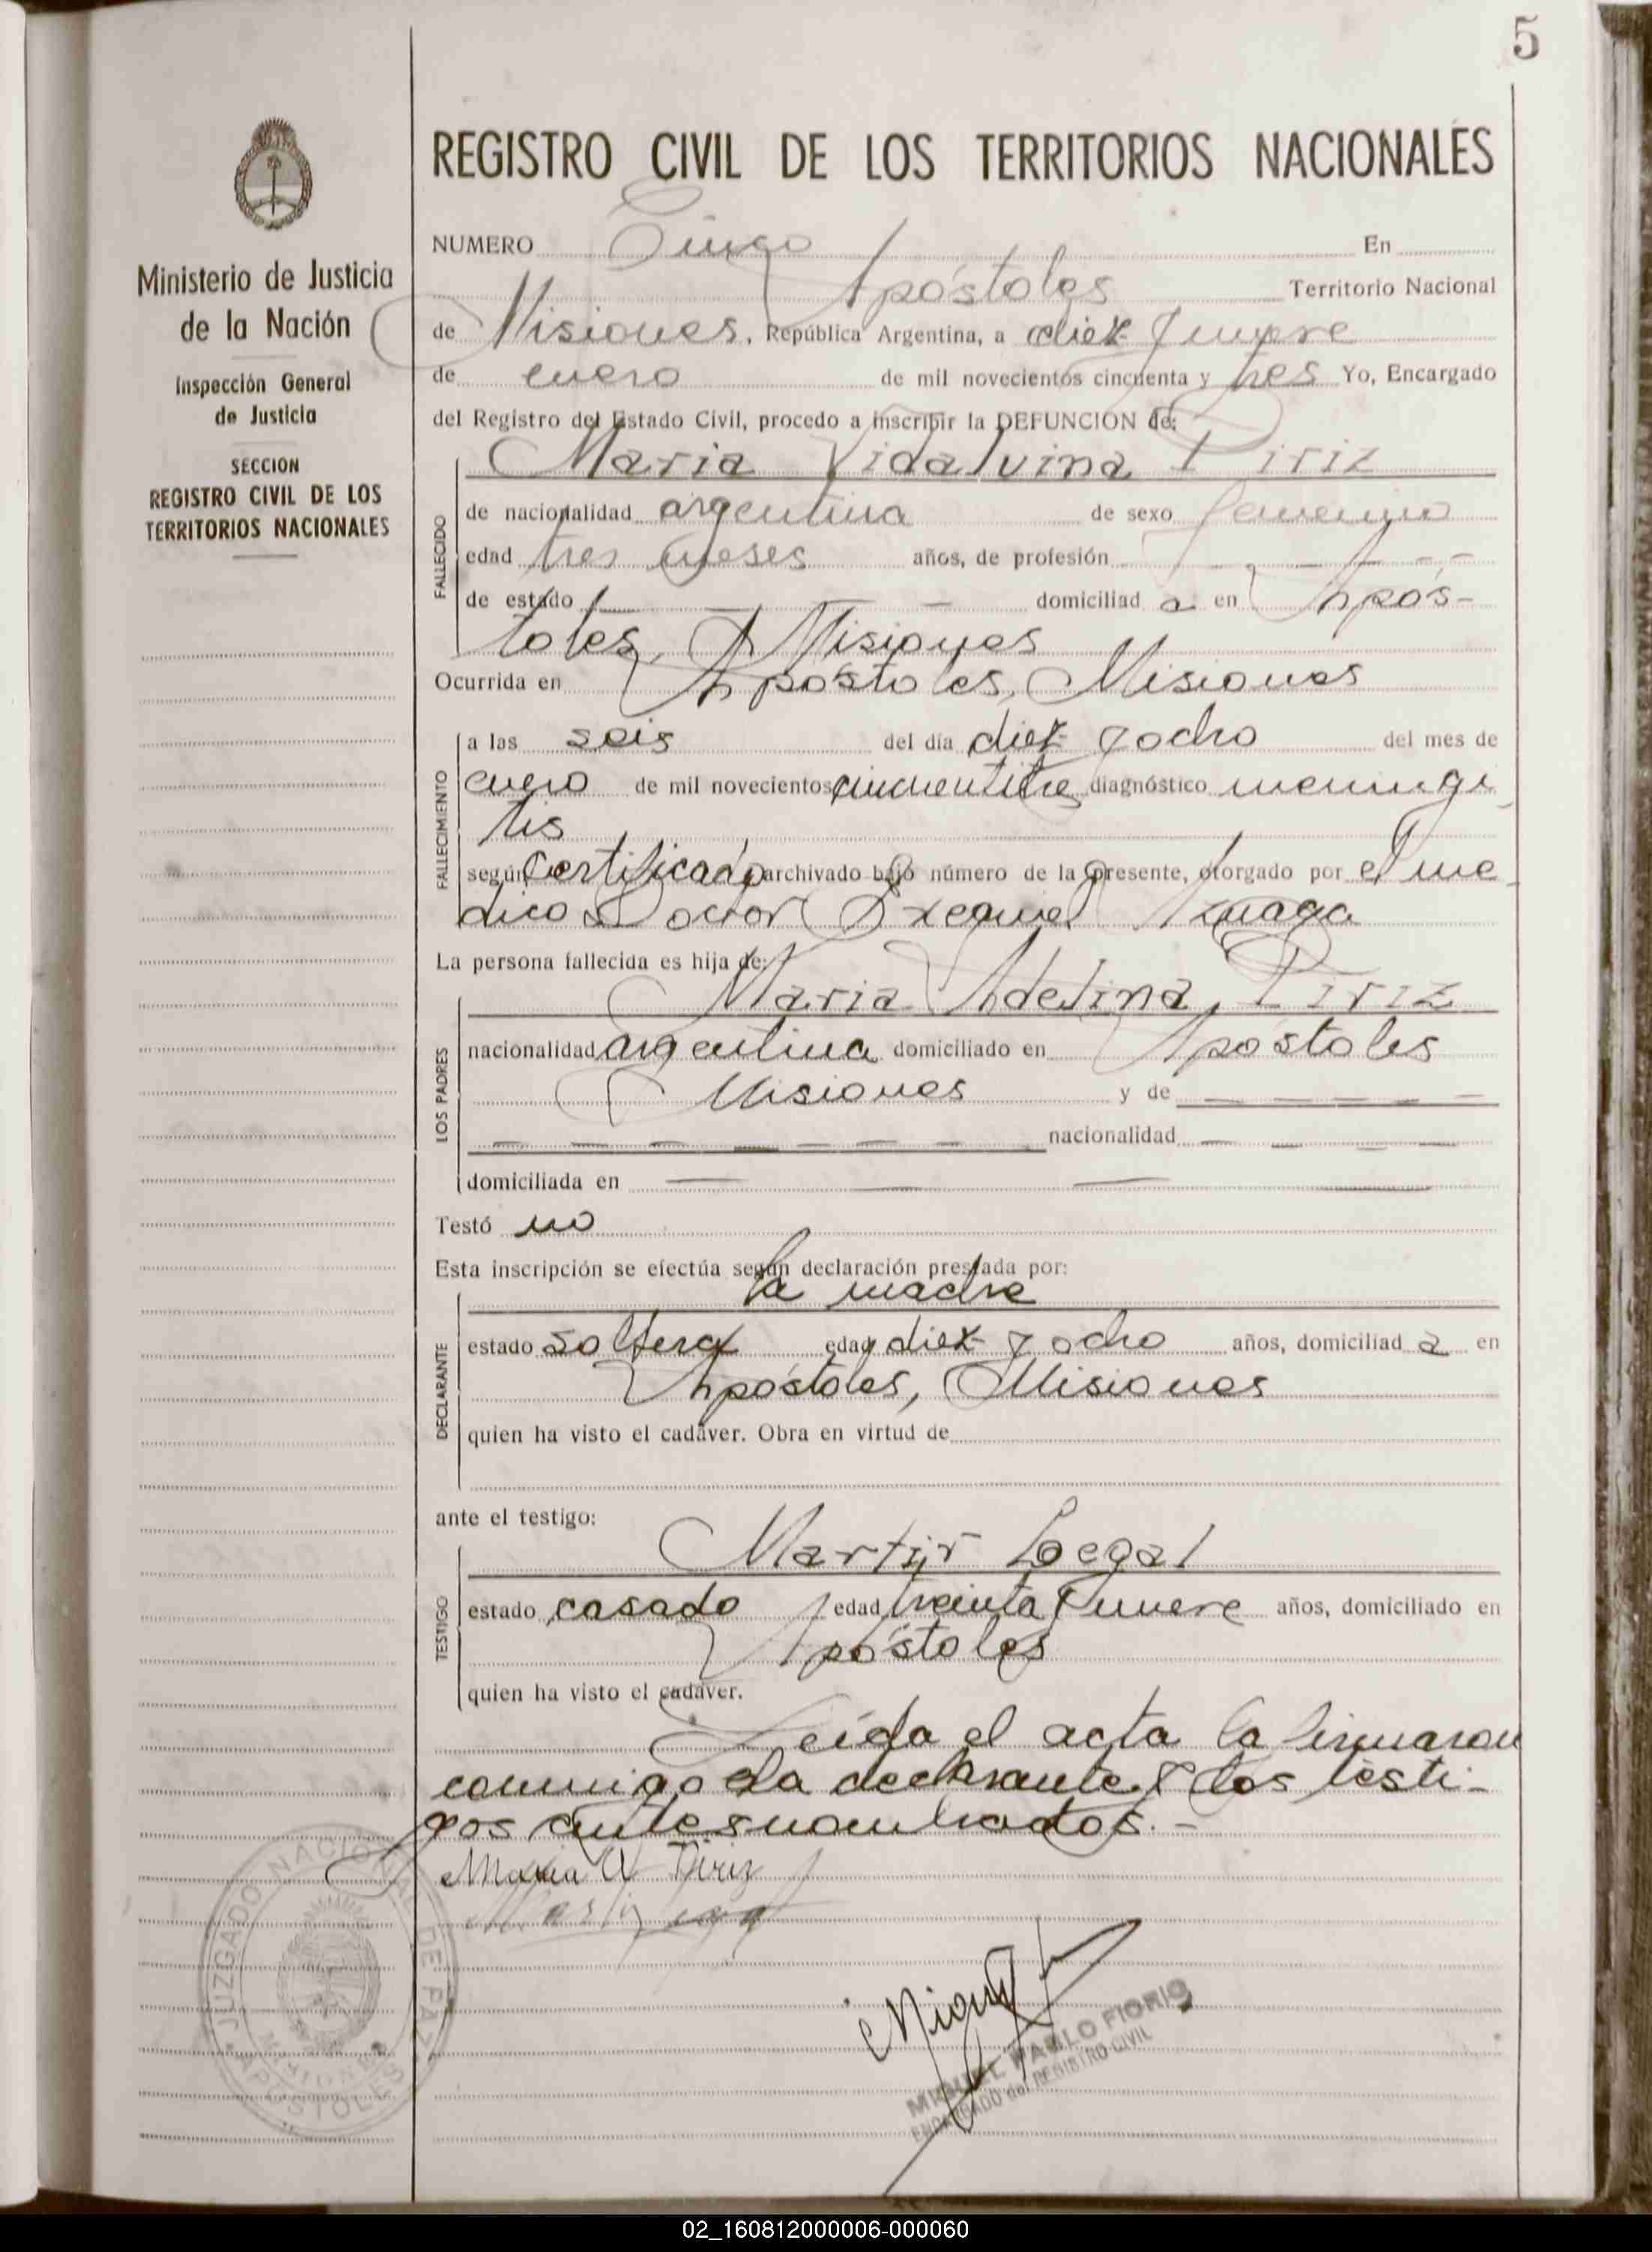 5
REGISTRO CIVIL DE LOS TERRITORIOS NACIONALES
Ministerio de Justicia
de la Nación
Inspección General
de Justicia
SECCION
REGISTRO CIVIL DE LOS
TERRITORIOS NACIONALES
NUMERO Cinco En
Apóstoles Territorio Nacional
de Misiones, República Argentina, a diez y nueve
de enero de mil novecientos cincuenta y tres Yo, Encargado
del Registro del Estado Civil, procedo a inscribir la DEFUNCION de:
Maria Vidalvina Piriz
FALLECIDO
de nacionalidad argentina de sexo femenino
edad tres meses años, de profesión
de estado domiciliad a en Após-
toles, Misiones
Ocurrida en Apóstoles, Misiones
FALLECIMIENTO
a las seis del día diez y ocho del mes de
enero de mil novecientos cincuentitres diagnóstico meningi
tis
según certificado archivado bajo número de la presente, otorgado por el me-
dico Doctor Exequiel
La persona fallecida es hija de:
Maria Adelina Piriz
LOS PADRES
nacionalidad argentina domiciliado en Apóstoles
Misiones y de
nacionalidad
domiciliada en
Testó no
Esta inscripción se efectúa según declaración prestada por:
la madre
DECLARANTE
estado soltera edad diez y ocho años, domiciliad a en
Apóstoles, Misiones
quien ha visto el cadáver. Obra en virtud de
ante el testigo:
Martir Legal
TESTIGO
estado casado edad treinta y nueve años, domiciliado en
Apóstoles
quien ha visto el cadáver.
Leida el acta la firmaron
conmigo la declarante y los testi-
gos antesnombrados.-
Maria A Piriz
MIGUEL PABLO FIORIO
ENCARGADO del REGISTRO CIVIL
JUZGADO NACIONAL DE PAZ
MISIONES
APOSTOLES
02_160812000006-000060